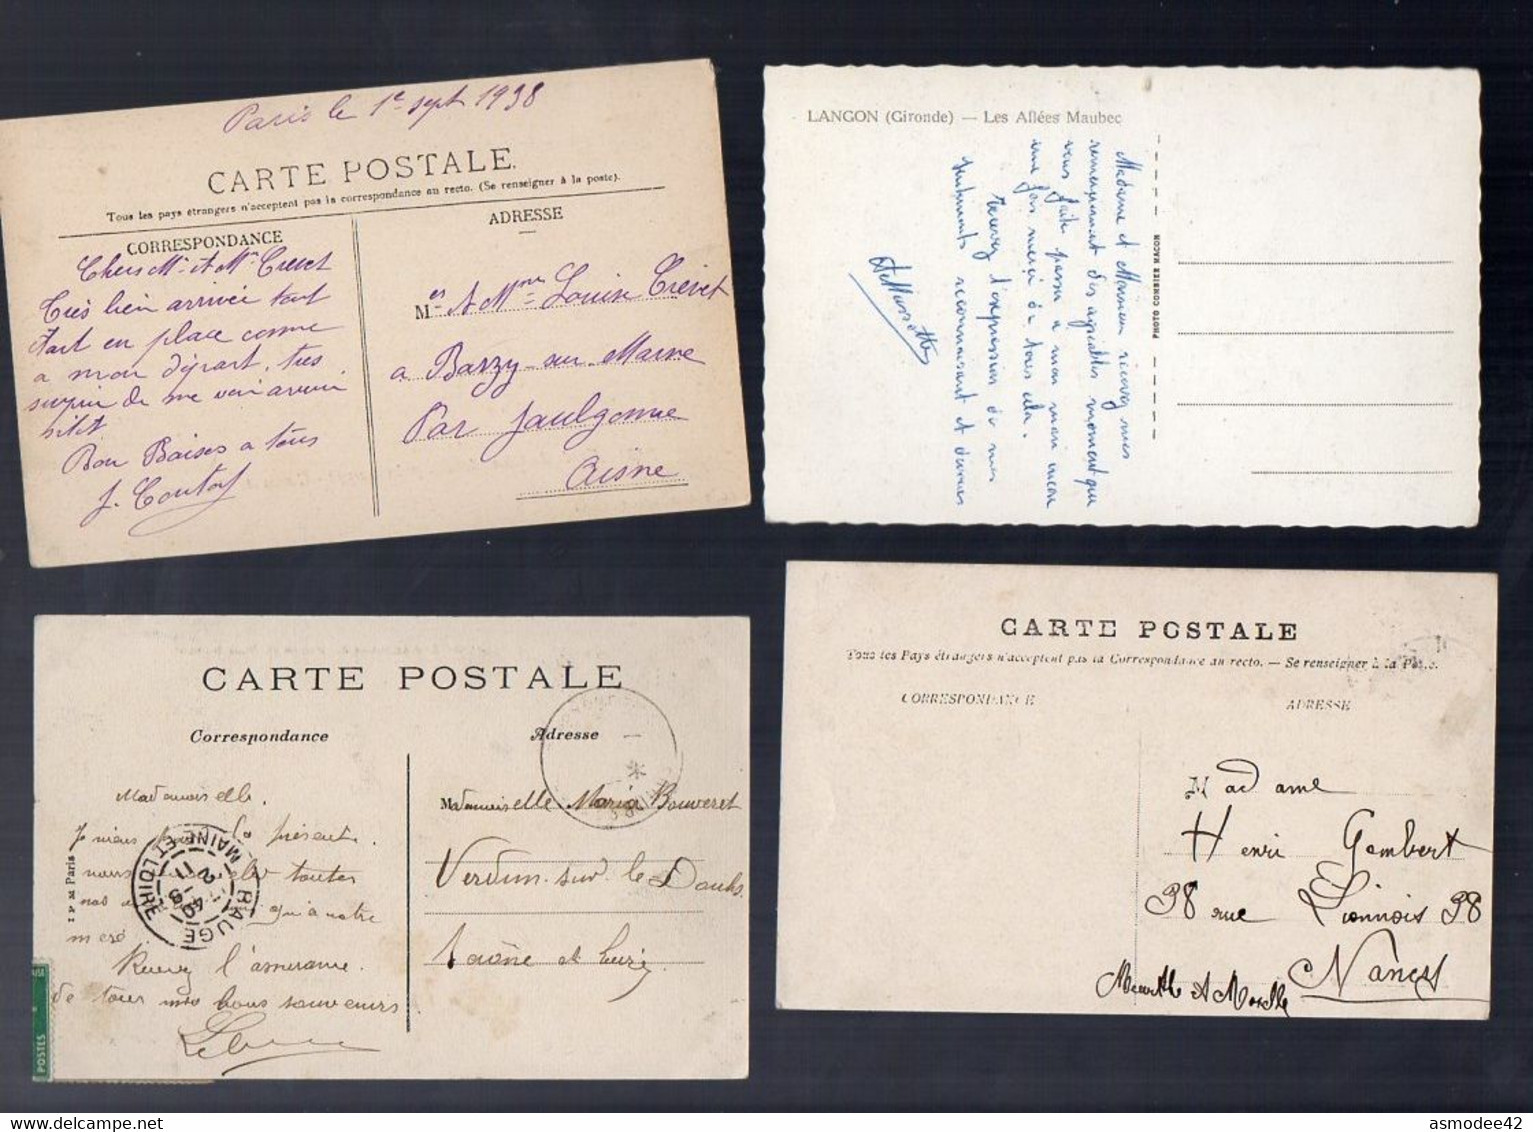 Paris le 1e sept 1938
CARTE POSTALE.
Tous les pays étrangers n'acceptent pas la correspondance au recto. (Se renseigner à la poste).
CORRESPONDANCE
ADRESSE
Chers Mr et Me Trevet
Très bien arrivée tout
était en place comme
a mon départ, très
de me voir
Bon Baisers a tous
Mes et Mme Louise Trevet
a Barzy sur Marne
Par Jaulgonne
Aisne
LANGON (Gironde) — Les Allées Maubec
Madame et Monsieur recevez mes
remerciements des agréables moments que
vous fait passer a mon mari encore
une fois merci de tous cela.
Recevez l'expression de mes
sentiments reconnaissant et
PHOTO COMBIER MACON
CARTE POSTALE
Correspondance
Adresse
Mademoiselle.
Je viens la présente
toutes
nos qu'a notre
l'assurance
de tous mes bons souvenirs
Paris
BAUGE
MAINE ET LOIRE
POSTES
Mademoiselle Maria Bouveret
Verdun sur le Doubs
Saône et Loire
CARTE POSTALE
Tous les Pays étrangers n'acceptent pas la Correspondance au recto. — Se renseigner à la Poste.
CORRESPONDANCE
ADRESSE
Madame
Henri Gambert
98 rue Lionnois 98
Nancy
Meurthe et Moselle
asmodee42